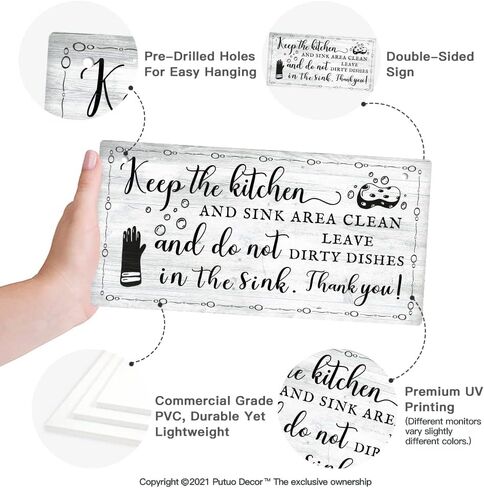 Pre-Drilled Holes
For Easy Hanging
K
Keep the kitchen
AND SINK AREA CLEAN
LEAVE
and do not DIRTY DISHES
in the sink. Thank you!
Double-Sided
Sign
Keep the kitchen
AND SINK AREA CLEAN
LEAVE
and do not DIRTY DISHES
in the sink. Thank you!
Commercial Grade
PVC, Durable Yet
Lightweight
he kitchen
AND SINK ARE
do not DIP
Premium UV
Printing
(Different monitors
vary slightly
different colors.)
Copyright ©2021 Putuo Decor™ The exclusive ownership